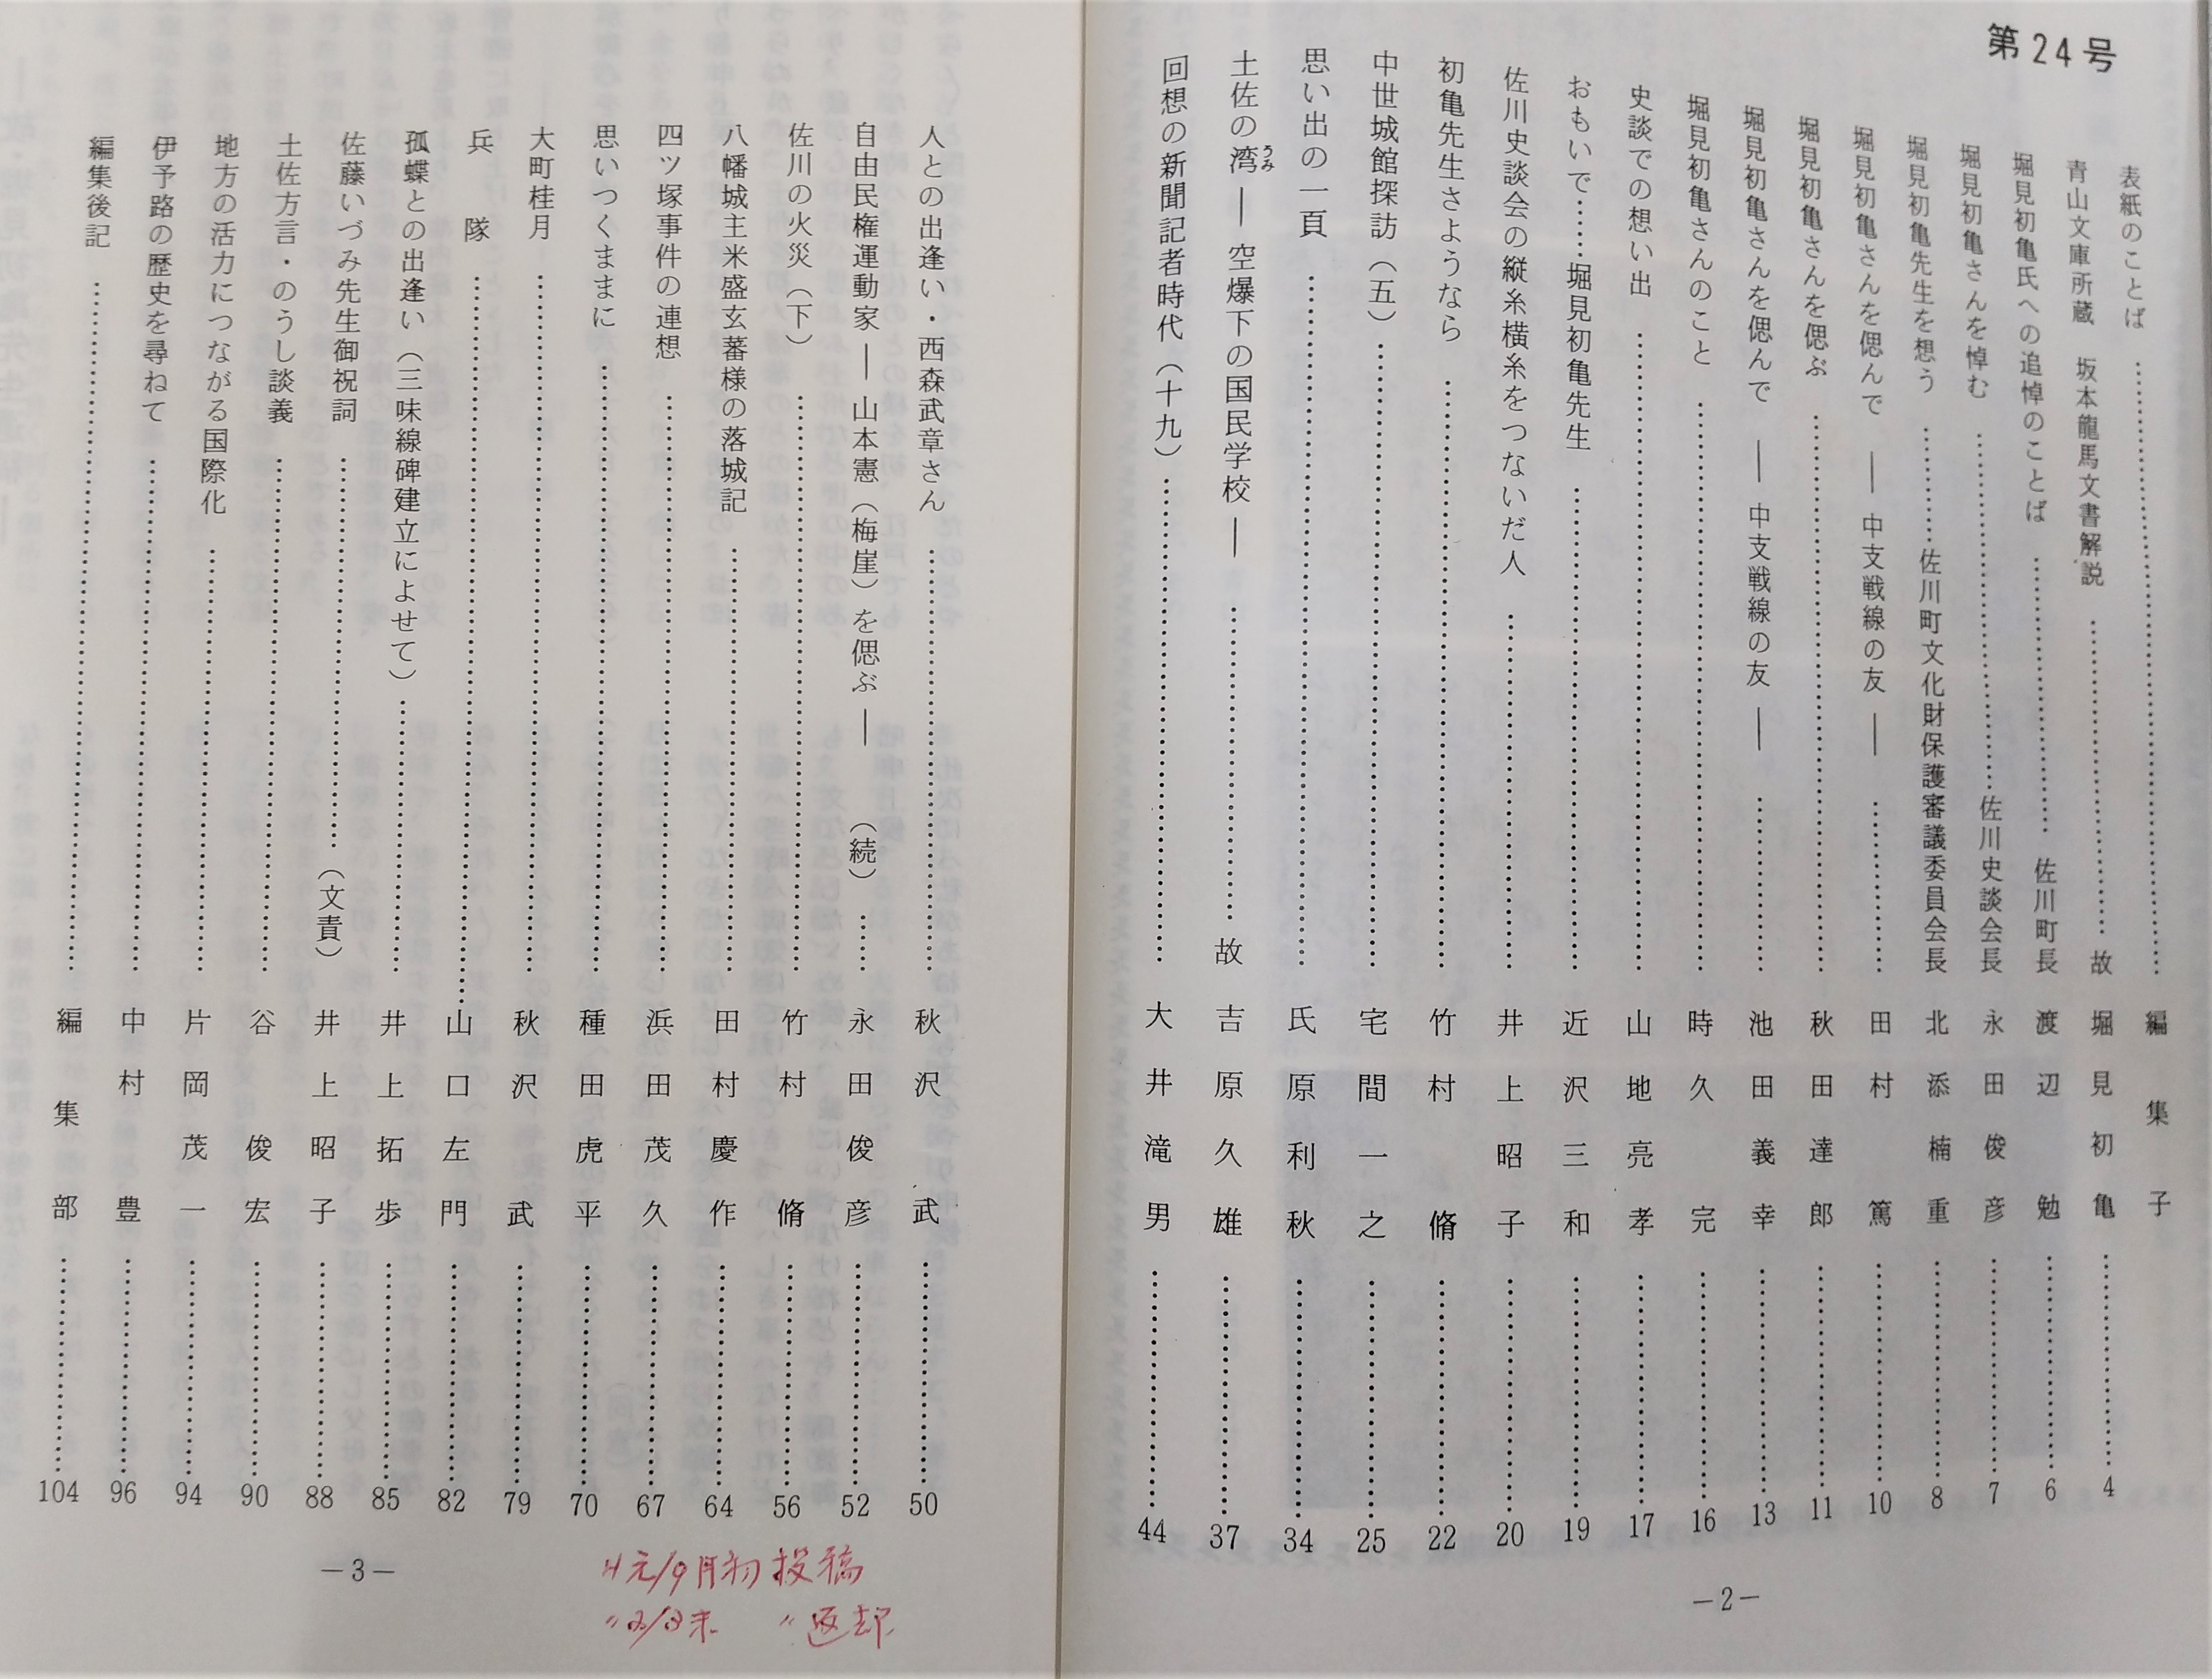 第24号
表紙のことば……編集子
青山文庫所蔵　坂本龍馬文書解説……故　堀見初亀……4
堀見初亀氏への追悼のことば……佐川町長　渡辺勉……6
堀見初亀さんを悼む……佐川史談会長　永田俊彦……7
堀見初亀先生を想う……佐川町文化財保護審議委員会長　北添楠重……8
堀見初亀さんを偲んで ― 中支戦線の友 ―……田村篤……10
堀見初亀さんを偲ぶ……秋田達郎……11
堀見初亀さんを偲んで ― 中支戦線の友 ―……池田義幸……13
堀見初亀さんのこと……時久完……16
史談での想い出……山地亮孝……17
おもいで……堀見初亀先生……近沢三和……19
佐川史談会の縦糸横糸をつないだ人……井上昭子……20
初亀先生さようなら……竹村脩……22
中世城館探訪（五）……宅間一之……25
思い出の一頁……氏原利秋……34
土佐の湾うみ ― 空爆下の国民学校 ―……故　吉原久雄……37
回想の新聞記者時代（十九）……大井滝男……44
－2－
人との出逢い・西森武章さん……秋沢武……50
自由民権運動家 ― 山本憲（梅崖）を偲ぶ ―　（続）……永田俊彦……52
佐川の火災（下）……竹村脩……56
八幡城主米盛玄蕃様の落城記……田村慶作……64
四ツ塚事件の連想……浜田茂久……67
思いつくままに……種田虎平……70
大町桂月……秋沢武……79
兵　隊……山口左門……82
孤蝶との出逢い（三味線碑建立によせて）……井上拓歩……85
佐藤いづみ先生御祝詞……（文責）井上昭子……88
土佐方言・のうし談義……谷俊宏……90
地方の活力につながる国際化……片岡茂一……94
伊予路の歴史を尋ねて……中村豊……96
編集後記……編集部……104
－3－
H元/9月初 投稿
〃2/3末　〃返却